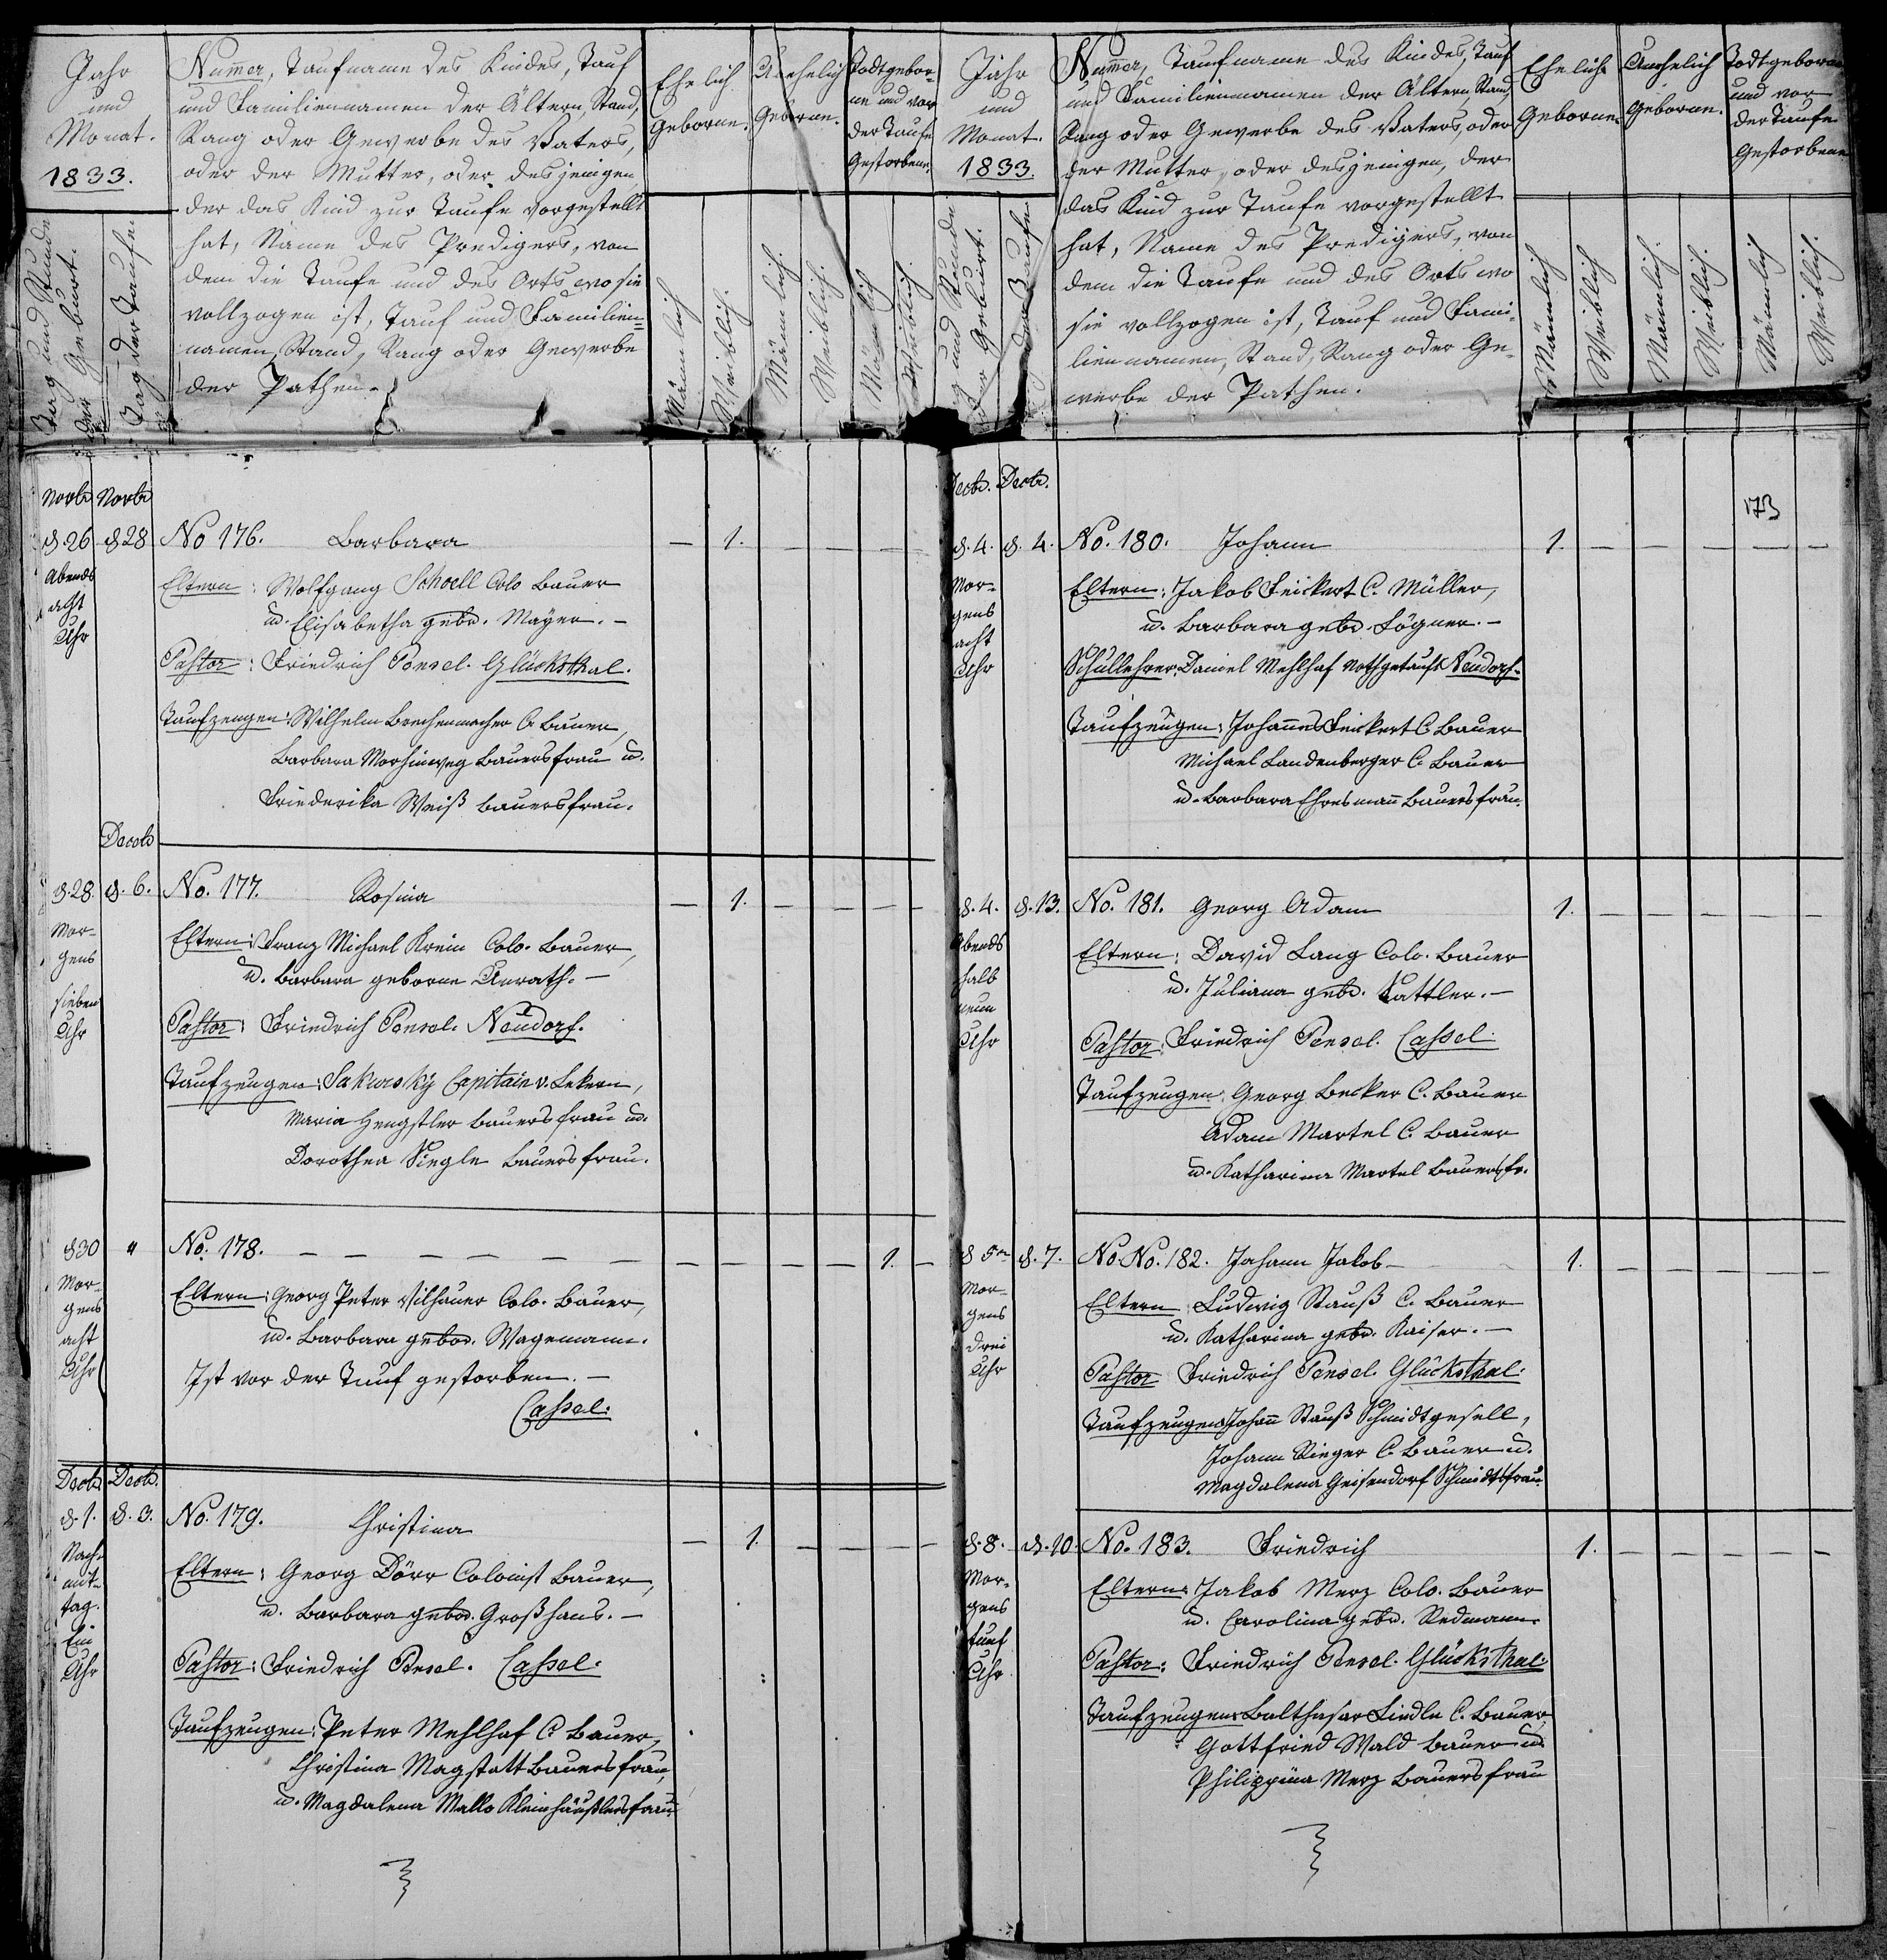 Jahr
und
Monat.
1833.
Tag und Stunde
der Geburt.
Tag der Taufe
Num̄er, Taufname des Kindes, Tauf
und Familiennamen der Ältern, Stand,
Rang oder Gewerbe des Vaters,
oder der Mutter, oder desjenigen
der das Kind zur Taufe vorgestellt
hat, Name des Predigers, von
dem die Taufe und des Orts wo sie
vollzogen ist, Tauf und Familien-
namen, Stand, Rang oder Gewerbe
der Pathen.
Ehelich
Geborne.
Unehelich
Geborne.
Todtgebor-
ne und vor
der Taufe
Gestorbene.
Mänlich
Weiblich.
Mänlich.
Weiblich.
Mänlich
Weiblich.
Novbr Novbr
d. 26 d 28 No 176. Barbara — 1. — — — —
Abends
acht
Uhr
Eltern: Wolfgang Schoell Colo Bauer
u. Elisabetha gebr. Mayer. —
Pastor: Friedrich Pensel. Glücksthal.
Taufzeugen: Wilhelm Brechenmacher C. Bauer,
Barbara Morhinweg Bauersfrau u.
Friederika Weiß Bauersfrau.
Decbr
d. 28. d. 6. No. 177. Rosina — 1. — — — —
Mor-
gens
sieben
Uhr
Eltern: Franz Michael Krein Colo. Bauer,
u. Barbara geborne Anrath. —
Pastor: Friedrich Pensel. Neudorf.
Taufzeugen: Sakursky Capitain v. Lekern,
Maria Hengstler Bauersfrau u.
Dorothea Siegle Bauersfrau.
d 30 " No. 178. — — — — — — — — — 1. —
Mor-
gens
acht
Uhr
Eltern: Georg Peter Vilhauer Colo. Bauer,
u. Barbara gebor. Wagemann.
Ist vor der Tauf gestorben. —
Cassel.
Decbr Decbr.
d. 1. d. 3. No. 179. Christina — 1. — — — —
Nach-
mit-
tag.
Ein
Uhr
Eltern: Georg Dörr Colonist Bauer,
u. Barbara gebor. Großhans. —
Pastor: Friedrich Pensel. Cassel.
Taufzeugen: Peter Mehlhaf C. Bauer,
Christina Magstatt Bauersfrau,
u. Magdalena Mallo Kleinhäußlersfrau.
Jahr
und
Monat.
1833.
Tag und Stunde
der Geburt.
der Taufe
Num̄er, Taufname des Kindes, Tauf
und Familiennamen der Ältern, Stand,
Rang oder Gewerbe des Vaters, oder
der Mutter, oder desjenigen, der
das Kind zur Taufe vorgestellt
hat, Name des Predigers, von
dem die Taufe und des Orts wo
sie vollzogen ist, Tauf und Fami-
liennamen, Stand, Rang oder Ge-
werbe der Pathen.
Ehelich
Geborne.
Unehelich
Geborne.
Todtgeborne
und vor
der Taufe
Gestorbene
Mänlich
Weiblich
Mänlich.
Weiblich.
Mänlich
Weiblich.
173
Decbr. Decbr.
d. 4. d. 4. No. 180. Johann 1. — — — — —
Mor-
gens
acht
Uhr
Eltern: Jakob Feickert C. Müller,
u. Barbara gebr. Fögner. —
Schullehrer: Daniel Mehlhaf Nothgetauft Neudorf.
Taufzeugen: Johannes Feickert C Bauer
Michael Landenberger C. Bauer
u. Barbara Ehresmañ Bauersfrau.
d. 4. d. 13. No. 181. Georg Adam 1. — — — — —
Abends
halb
neun
Uhr
Eltern: David Lang Colo. Bauer
u. Juliana gebr. Sattler. —
Pastor: Friedrich Pensel. Cassel.
Taufzeugen: Georg Becker C. Bauer
Adam Martel C. Bauer
u. Katharina Martel Bauersfr.
d 5ten d. 7. No. No. 182. Johann Jakob — 1. — — — — —
Mor-
gens
drei
Uhr
Eltern: Ludwig Stauß C. Bauer
u. Katharina gebr. Kaiser. —
Pastor Friedrich Pensel. Glücksthal.
Taufzeugen: Johañ Stauß Schmidtgesell,
Johann Rieger C. Bauer u.
Magdalena Geisendorf Schmidtsfrau.
d. 8. d. 10. No. 183. Friedrich 1. — — — — —
Mor-
gens
fünf
Uhr
Eltern: Jakob Merz Colo. Bauer
u. Carolina gebr. Redmann.
Pastor: Friedrich Pensel. Glücksthal.
Taufzeugen: Balthasar Liedle C. Bauer,
Gottfried Wald Bauer u.
Philippina Merz Bauersfrau